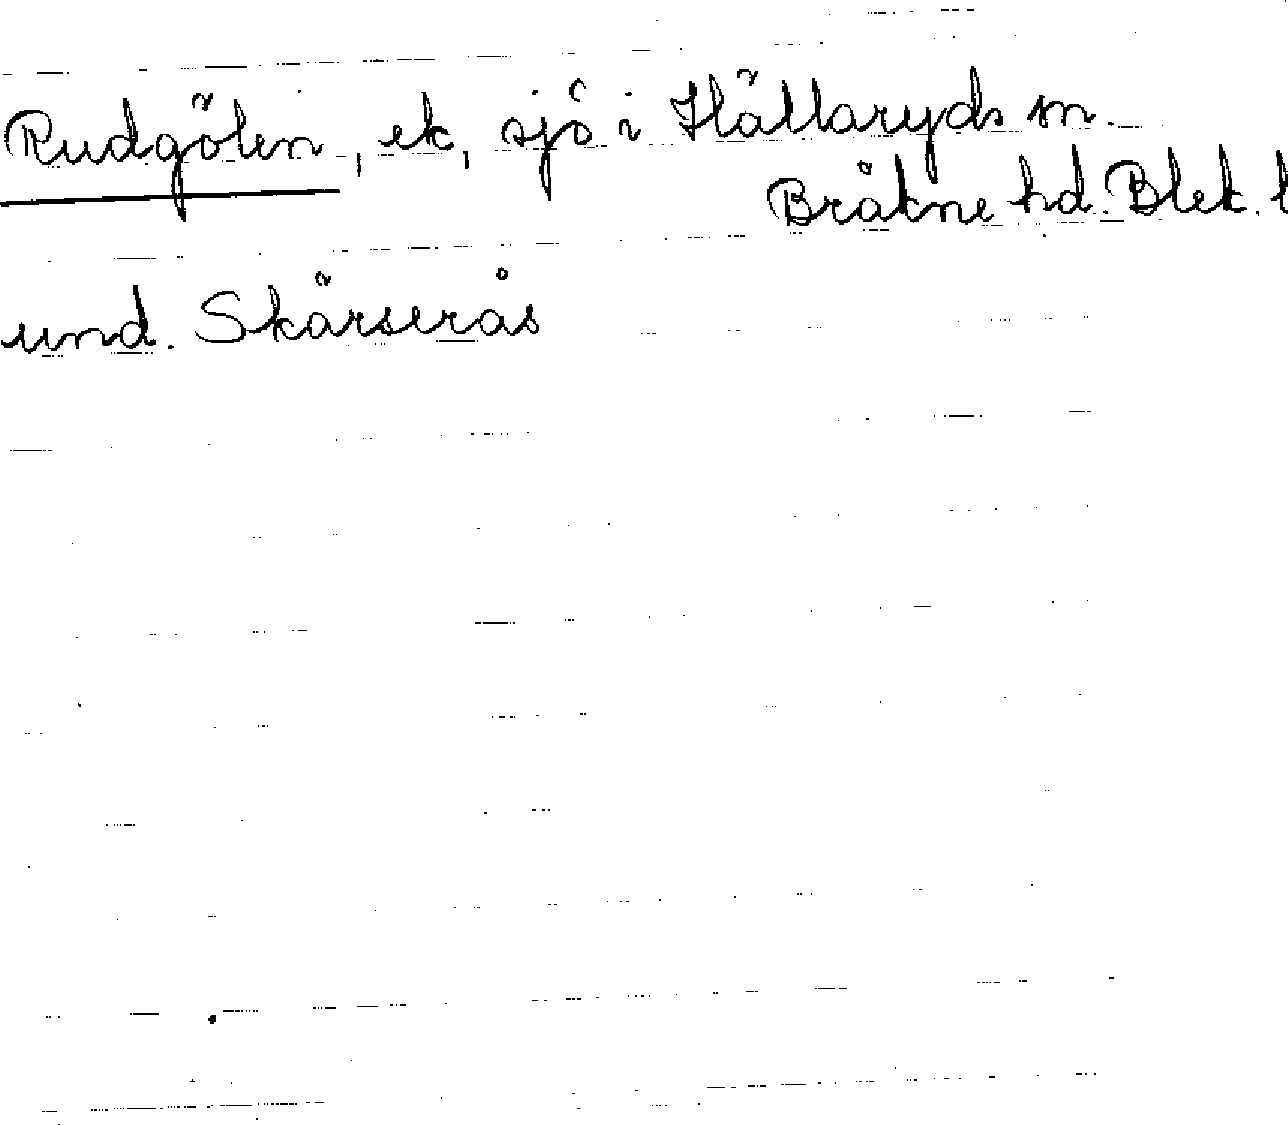 Rudgölen, ek, sjö i Hällaryds sn.
Bräkne hd. Blek. l
und. Skärserås